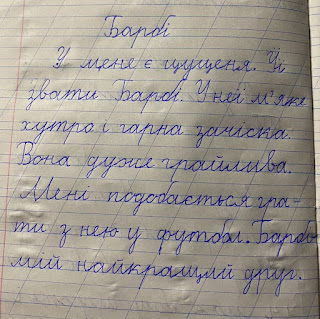 Барбі
У мене є цуценя. Її
звати Барбі. У неї м'яке
хутро і гарна зачіска.
Вона дуже грайлива.
Мені подобається гра-
ти з нею у футбол. Барбі-
мій найкращий друг.